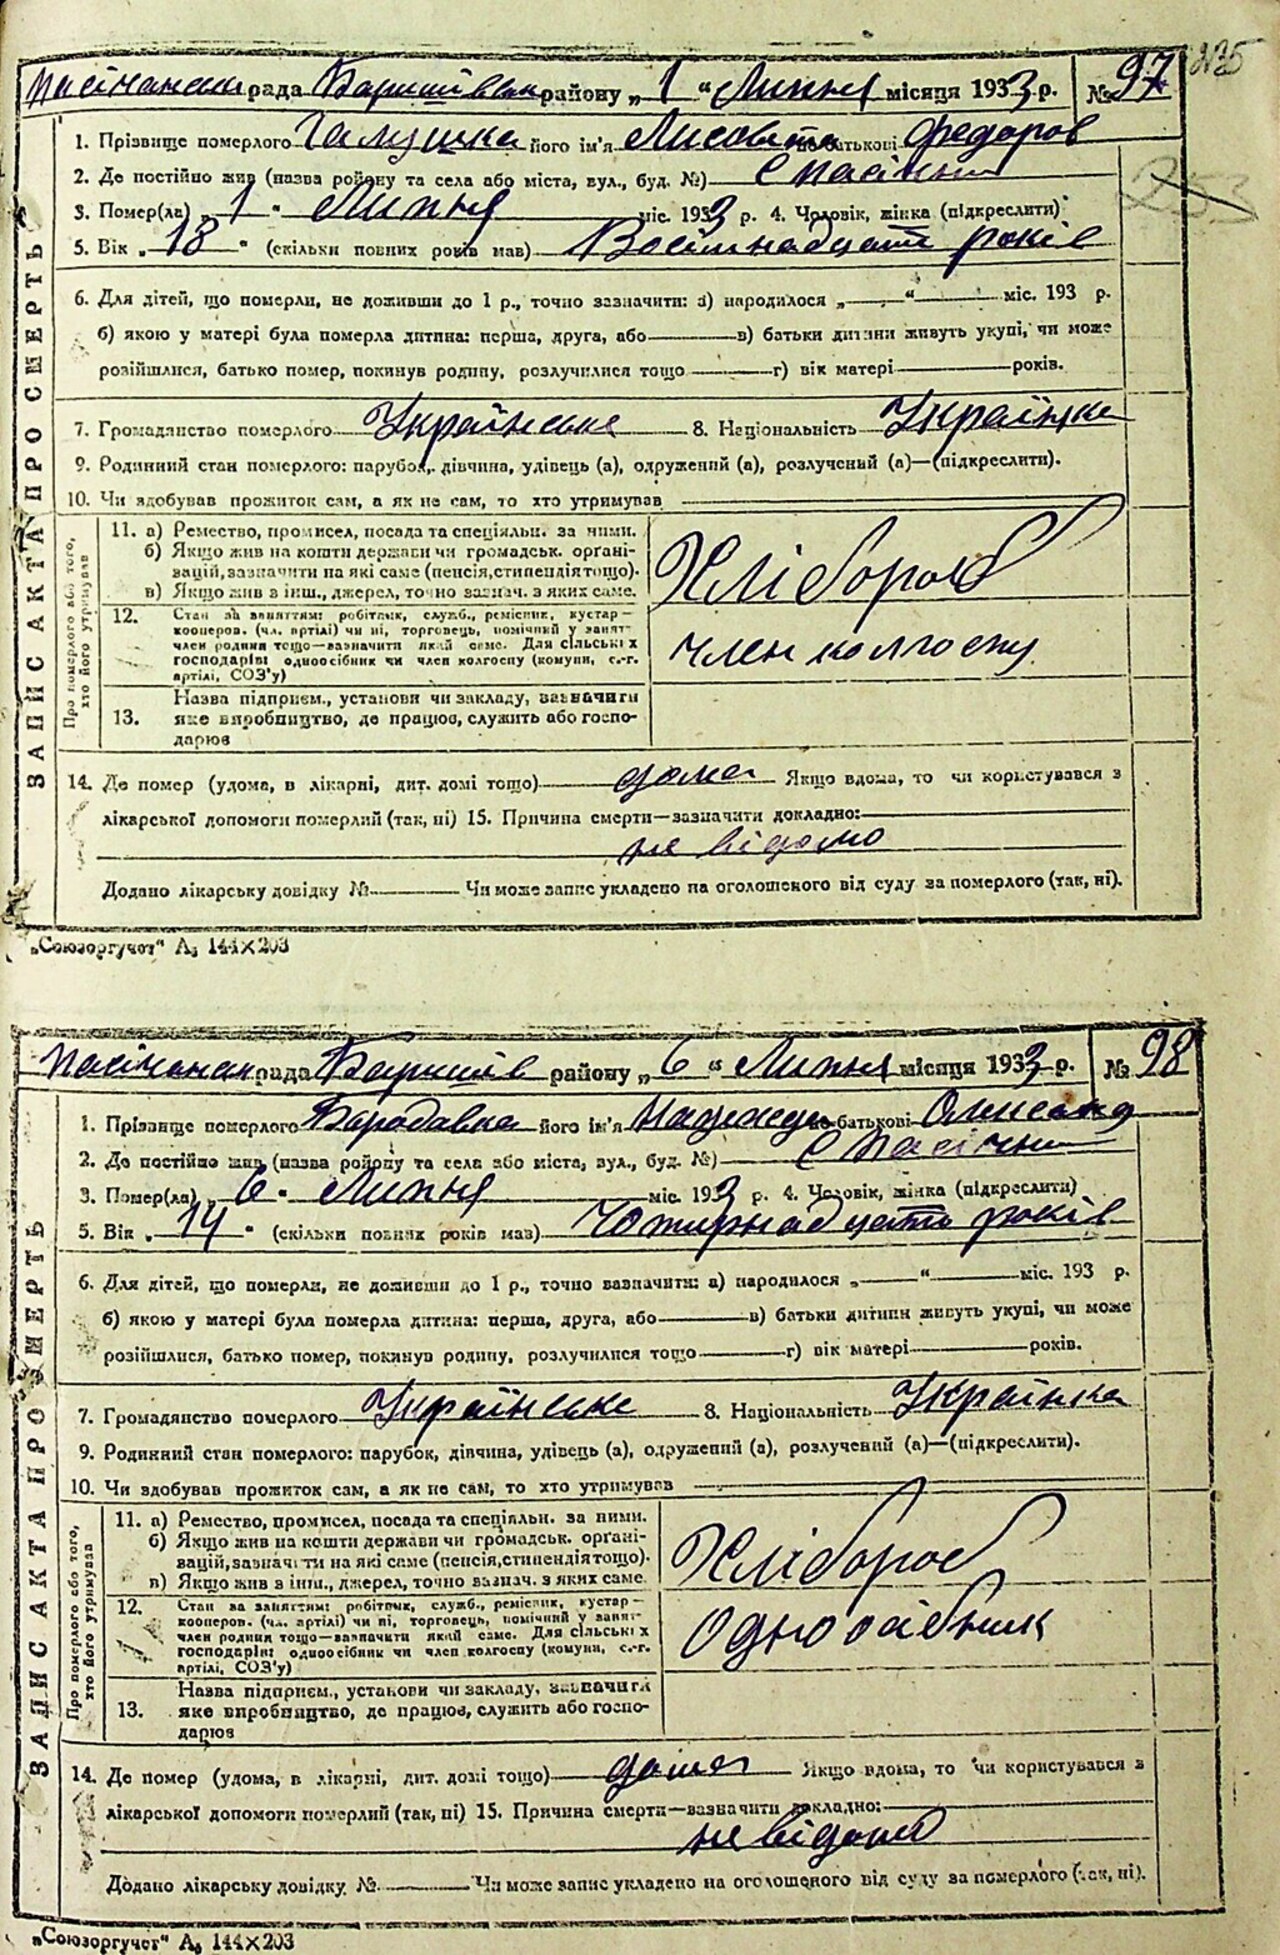 235
рада Баришівськ району „ 1 “ Липня місяця 1933 р. № 97
253
ЗАПИС АКТА ПРО СМЕРТЬ
1. Прізвище померлого Галушка його ім'я Лисовета по батькові Федоров
2. Де постійно жив (назва району та села або міста, вул., буд. №) с Пасічни
3. Помер(ла) „ 1 “ Липня міс. 1933 р. 4. Чоловік, жінка (підкреслити)
5. Вік „ 18 “ (скільки повних років мав) Восімнадцать років
6. Для дітей, що померли, не доживши до 1 р., точно зазначити: а) народилося „ “ міс. 193 р.
б) якою у матері була померла дитина: перша, друга, або в) батьки дитини живуть укупі, чи може
розійшлися, батько помер, покинув родину, розлучилися тощо г) вік матері років.
7. Громадянство померлого Українське 8. Національність Українка
9. Родинний стан померлого: парубок, дівчина, удівець (а), одружений (а), розлучений (а)—(підкреслити).
10. Чи здобував прожиток сам, а як не сам, то хто утримував
Про померлого або того,
хто його утримував
11. а) Ремество, промисел, посада та спеціяльн. за ними.
б) Якщо жив на кошти держави чи громадськ. органі-
зацій, зазначити на які саме (пенсія, стипендія тощо).
в) Якщо жив з інш., джерел, точно зазнач. з яких саме.
Хлібороб
12. Стан за заняттям: робітник, служб., ремісник, кустар—
кооперов. (чл. артілі) чи ні, торговець, помічний у занят-
член родини тощо—зазначити який саме. Для сільських
господарів: одноосібник чи член колгоспу (комуни, с.-г.
артілі, СОЗ'у)
член колгоспу
Назва підприєм., установи чи закладу, зазначити
13. яке виробництво, де працює, служить або госпо-
дарює
14. Де помер (удома, в лікарні, дит. домі тощо) дома Якщо вдома, то чи користувався з
лікарської допомоги померлий (так, ні) 15. Причина смерти—зазначити докладно:
не відомо
Додано лікарську довідку № Чи може запис укладено на оголошеного від суду за померлого (так, ні).
„Союзоргучет“ А₅ 144×203
рада Баришів району „ 6 “ Липня місяця 1933 р. № 98
ЗАПИС АКТА ПРО СМЕРТЬ
1. Прізвище померлого Бародавка його ім'я Надежда по батькові Олександ
2. Де постійно жив (назва району та села або міста, вул., буд. №) с Пасічни
3. Помер(ла) „ 6 “ Липня міс. 1933 р. 4. Чоловік, жінка (підкреслити)
5. Вік „ 14 “ (скільки повних років мав) Чотирнадцять років
6. Для дітей, що померли, не доживши до 1 р., точно зазначити: а) народилося „ “ міс. 193 р.
б) якою у матері була померла дитина: перша, друга, або в) батьки дитини живуть укупі, чи може
розійшлися, батько помер, покинув родину, розлучилися тощо г) вік матері років.
7. Громадянство померлого Українське 8. Національність Українка
9. Родинний стан померлого: парубок, дівчина, удівець (а), одружений (а), розлучений (а)—(підкреслити).
10. Чи здобував прожиток сам, а як не сам, то хто утримував
Про померлого або того,
хто його утримував
11. а) Ремество, промисел, посада та спеціяльн. за ними.
б) Якщо жив на кошти держави чи громадськ. органі-
зацій, зазначити на які саме (пенсія, стипендія тощо).
в) Якщо жив з інш., джерел, точно зазнач. з яких саме
Хлібороб
12. Стан за заняттям: робітник, служб., ремісник, кустар—
кооперов. (чл. артілі) чи ні, торговець, помічний у занят-
член родини тощо—зазначити який саме. Для сільських
господарів: одноосібник чи член колгоспу (комуни, с.-г.
артілі, СОЗ'у)
одноосібник
Назва підприєм., установи чи закладу, зазначити
13. яке виробництво, де працює, служить або госпо-
дарює
14. Де помер (удома, в лікарні, дит. домі тощо) дома Якщо вдома, то чи користувався з
лікарської допомоги померлий (так, ні) 15. Причина смерти—зазначити докладно:
не відомо
Додано лікарську довідку № Чи може запис укладено на оголошеного від суду за померлого (так, ні).
„Союзоргучет“ А₅ 144×203